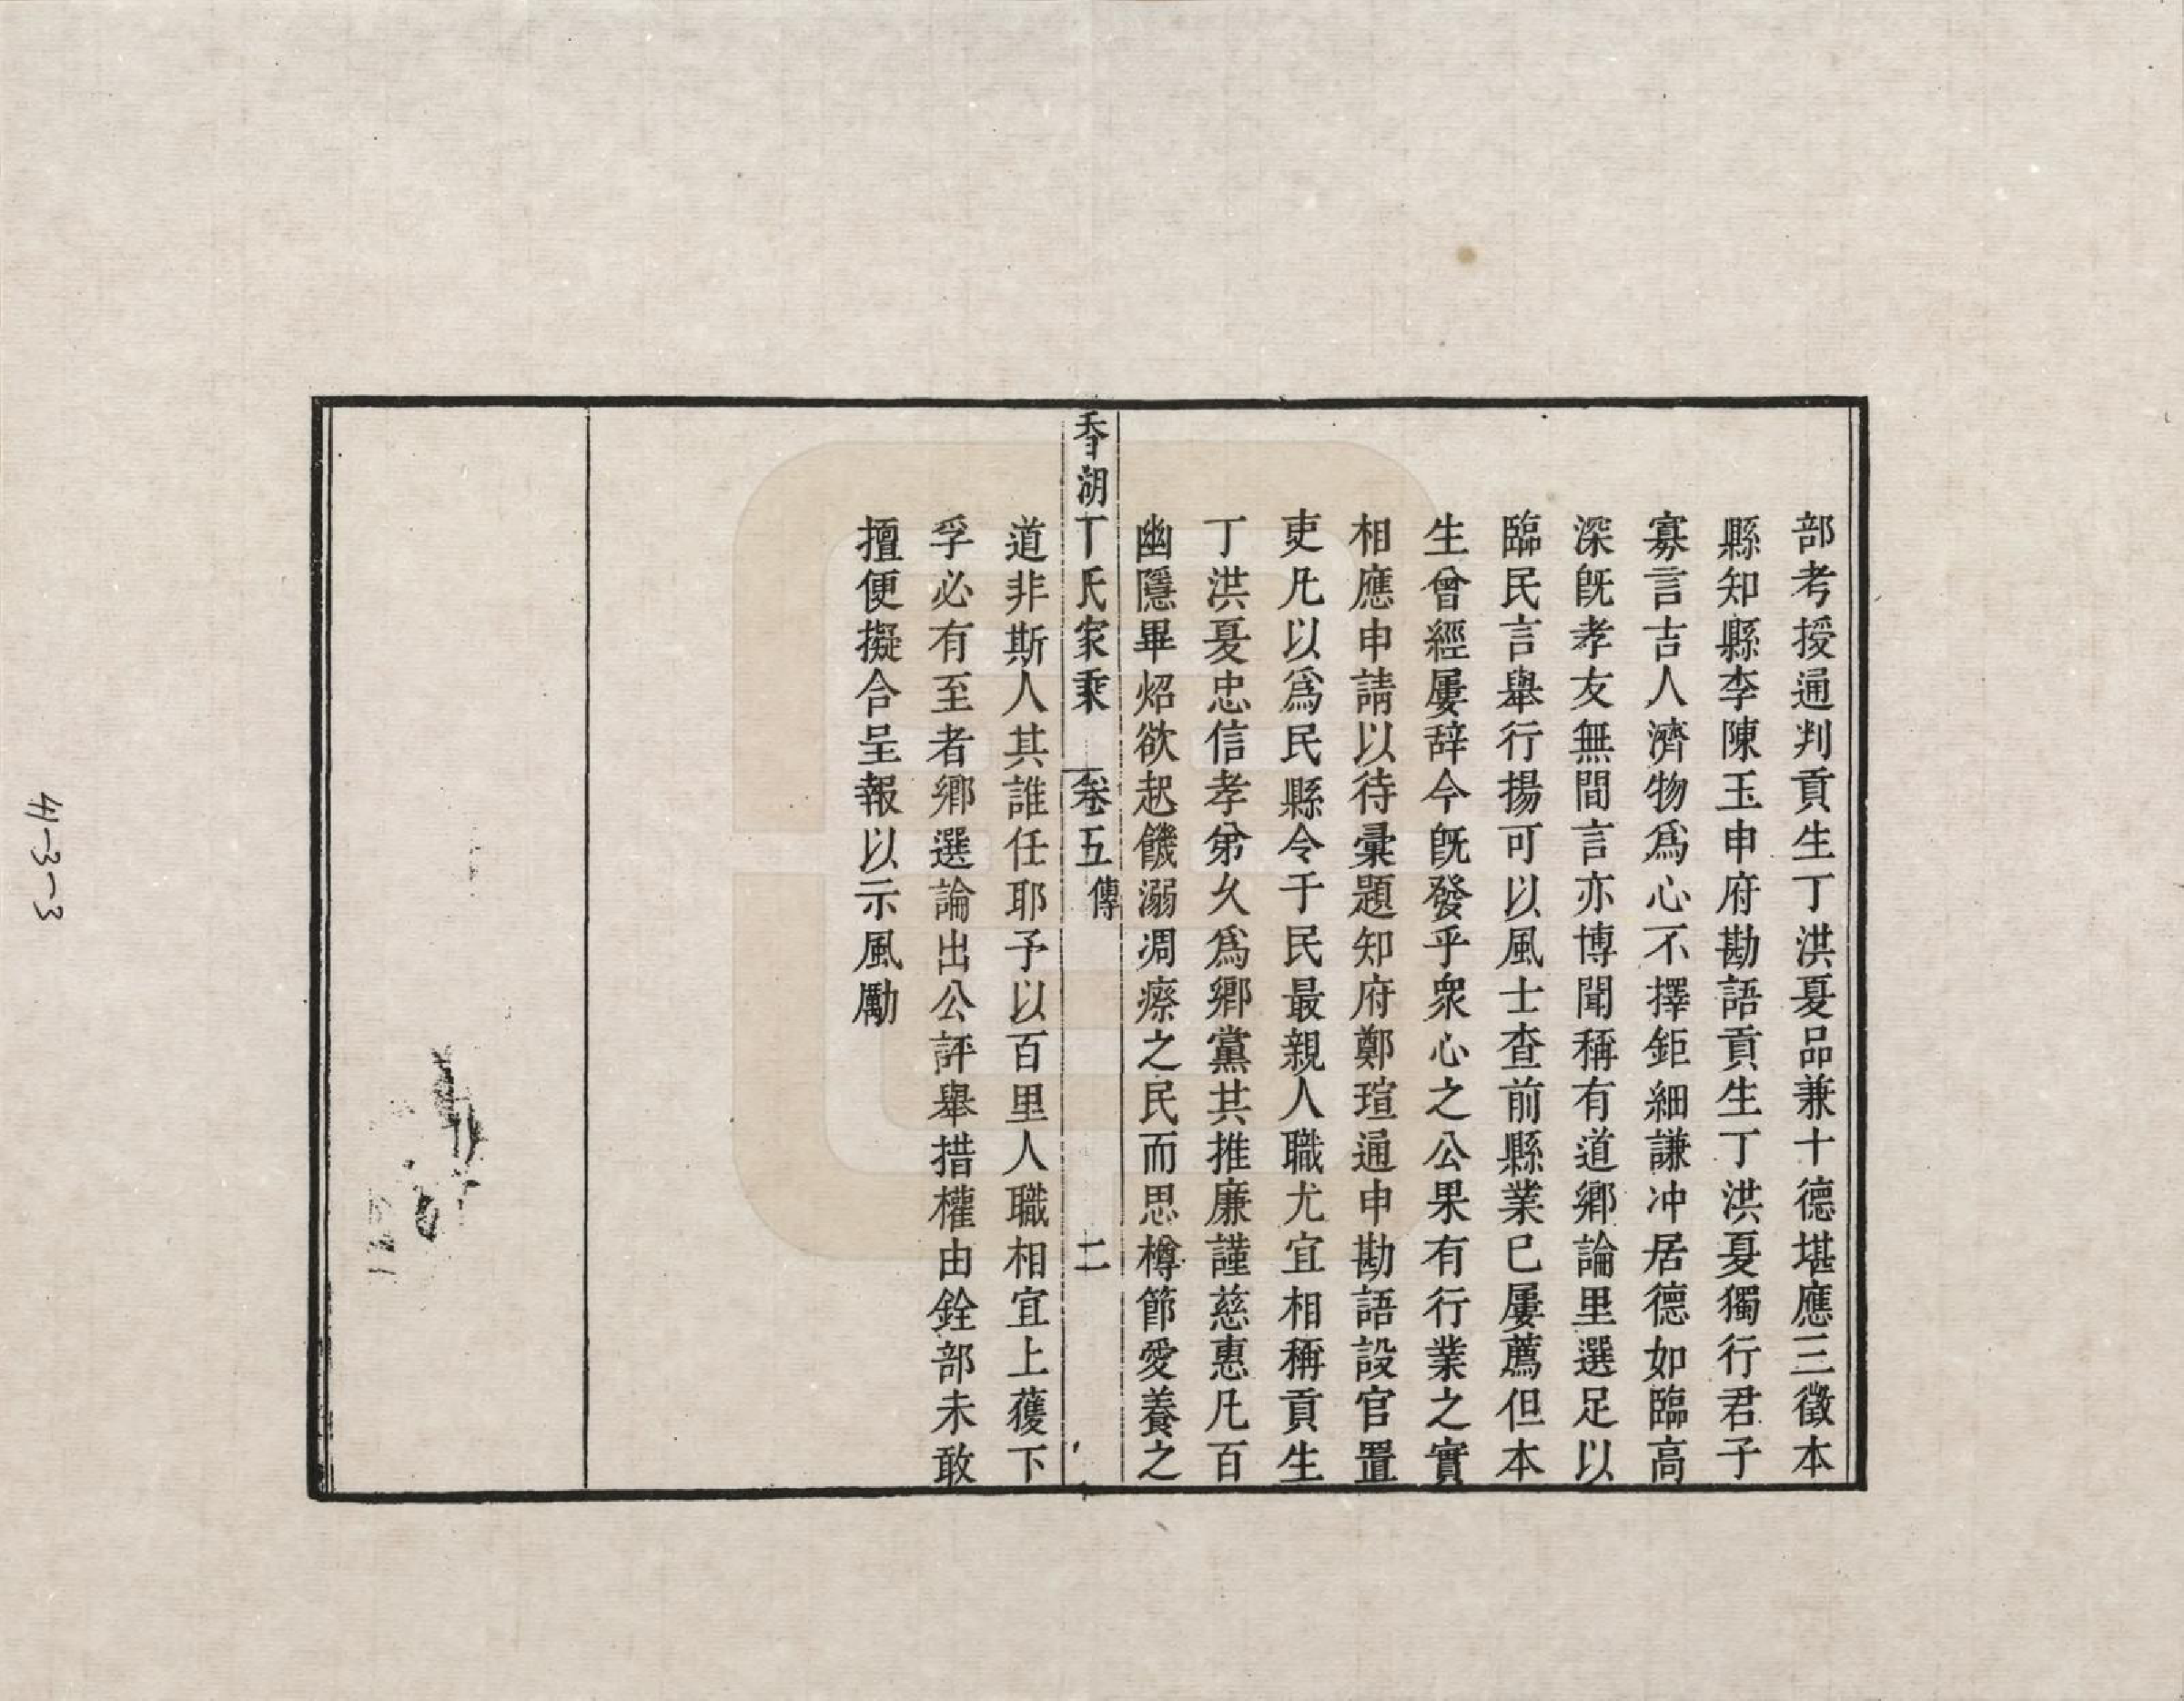 部考授通判貢生丁洪夏品兼十德堪應三徵本
縣知縣李陳玉申府勘語貢生丁洪夏獨行君子
寡言古人濟物爲心不擇鉅細謙冲居德如臨高
深旣孝友無間言亦博聞稱有道鄉論里選足以
臨民言舉行揚可以風士查前縣業巳屢薦但本
生曾經屢辞今旣發乎衆心之公果有行業之實
相應申請以待彙題知府鄭瑄通申勘語設官置
吏凡以爲民縣令于民最親人職尤宜相稱貢生
丁洪夏忠信孝弟久爲鄉黨共推廉謹慈惠凡百
幽隱畢炤欲起饑溺凋瘵之民而思樽節愛養之
香湖丁氏家乘 卷五 傳 二
道非斯人其誰任耶予以百里人職相宜上獲下
孚必有至者鄉選論出公評舉措權由銓部未敢
擅便擬合呈報以示風勵
4-3-3